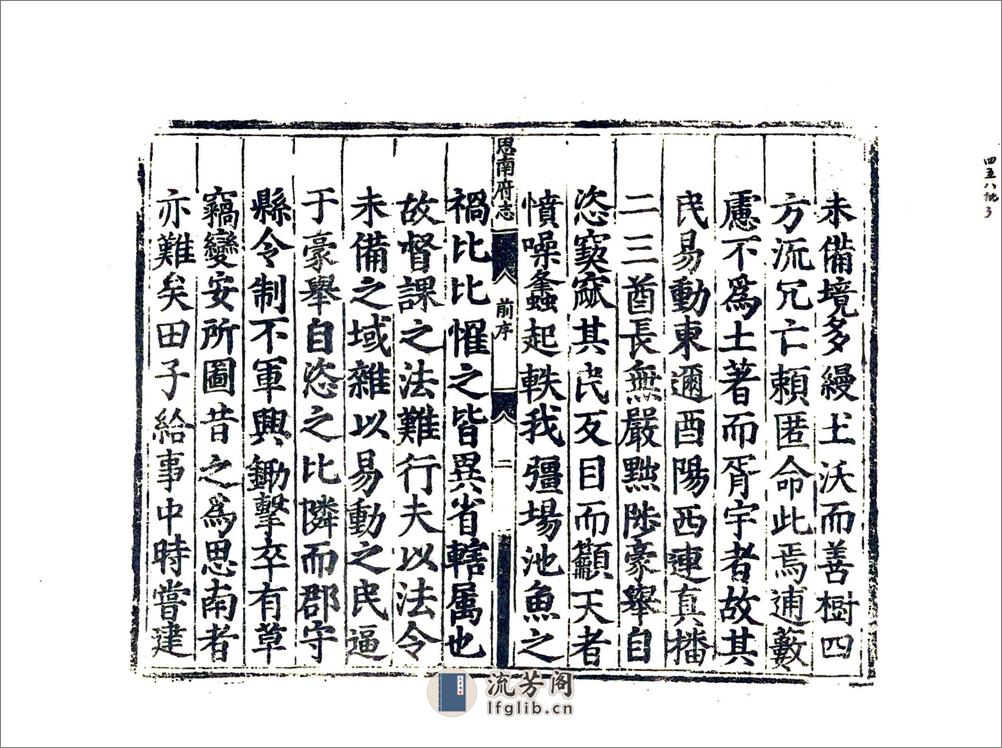 未備境多縵土沃而善樹四
方流冗亡賴匿命此焉逋藪
慮不爲土著而胥宇者故其
民易動東邇酉陽西連真播
二三酋長無嚴黜陟豪舉自
恣窫窳其民反目而籲天者
憤噪螽起軼我彊場池魚之
思南府志
前序
二
禍比比惟之皆異省轄属也
故督課之法難行夫以法令
未備之域雜以易動之民逼
于豪舉自恣之比隣而郡守
縣令制不軍興鋤擊卒有草
竊變安所圖昔之爲思南者
亦難矣田子給事中時嘗建
流芳阁
lfglib.cn